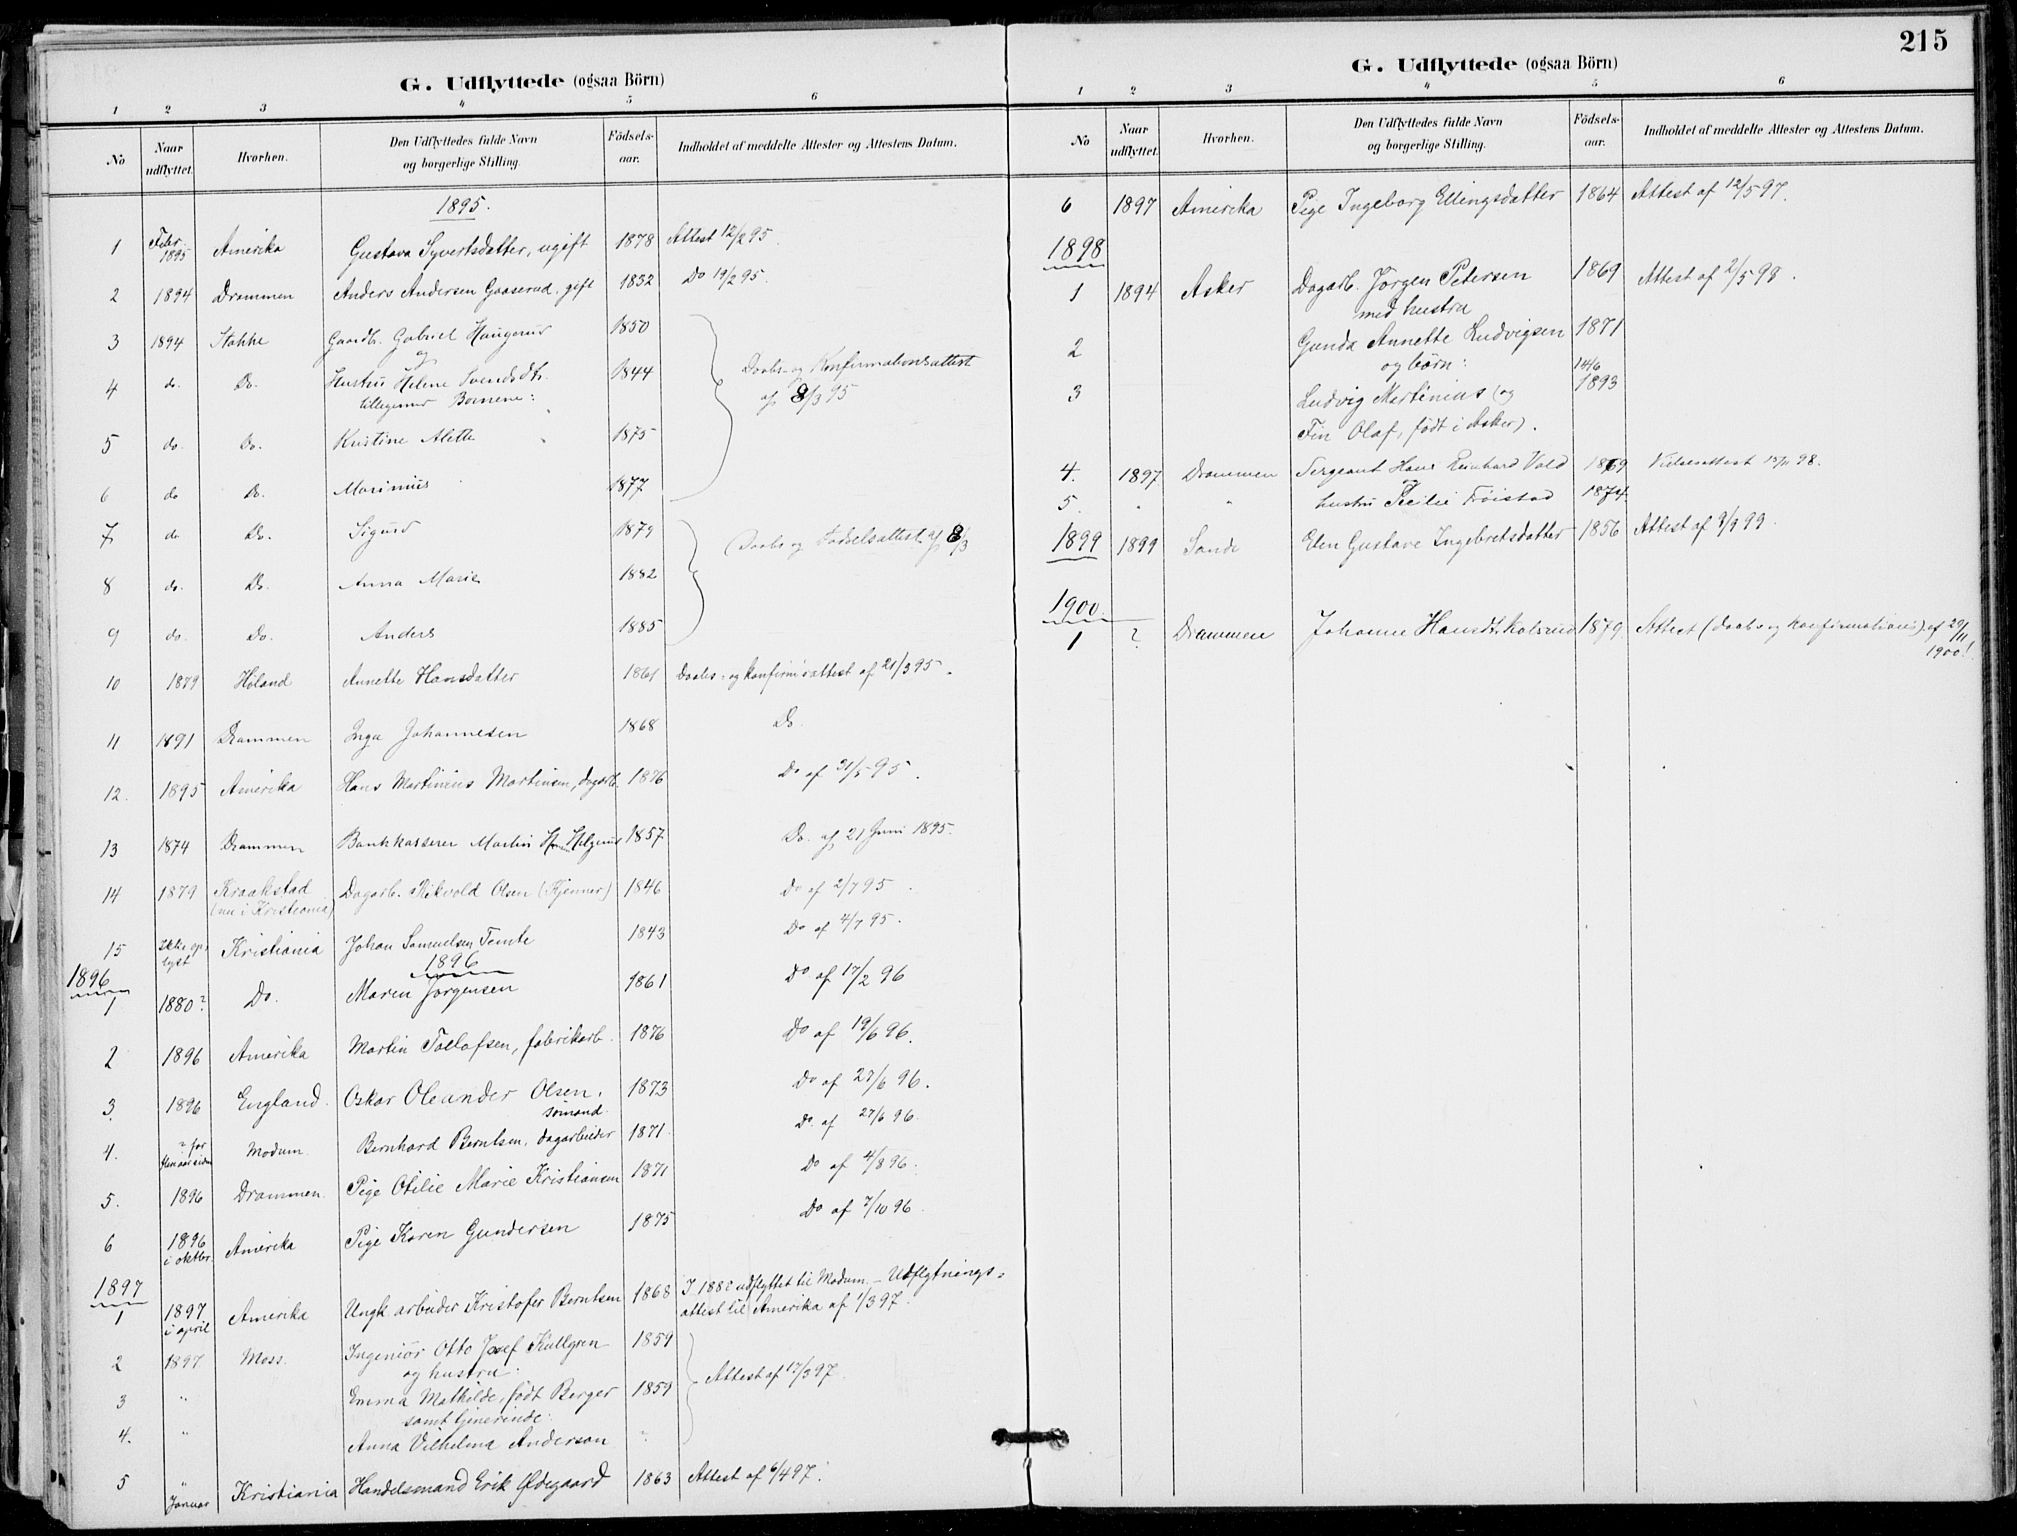 215
G. Udflyttede (ogsaa Börn)
1 2 3 4 5 6
No Naar udflyttet. Hvorhen. Den Udflyttedes fulde Navn og borgerlige Stilling. Födsels-aar. Indholdet af meddelte Attester og Attestens Datum.
1895.
1 Febr. 1895 Amerika Gustava Syvertsdatter, ugift 1878 Attest 12/2 95.
2 1894 Drammen Anders Andersen Gaaserud, gift 1852 Do 19/2 95.
3 1894 Stokke Gaardb. Gabriel Haugerud 1850
og
4 do. Do. Hustru Helene Svendsdtr. 1844 Daabs- og Konfirmationsattest
tilligemed Børnene: af 8/3 95
5 do. Do. Kristine Alette 1875
6 do Do. Marinius 1877
7 do Do. Sigurd 1879 Daabs og Fødselsattest af 8/3
8 do. Do. Anna Marie 1882
9 do. Do. Anders 1885
10 1879 Høland Annette Hansdatter 1861 Daabs- og konfirm's attest af 21/3 95.
11 1891 Drammen Inga Johannesen 1868 Do.
12. 1895 Amerika Hans Martinius Martinsen, dagarb. 1876 Do af 31/5 95.
13 1874 Drammen Bankkasserer Martin Helgerud 1857 Do. af 21 Juni 1895.
14 1879 Kraakstad Dagarb. Rikvold Olsen (Kjenner) 1846 Do af 2/7 95.
(nu i Kristiania)
15 Ikke oplyst Kristiania Johan Samuelsen Tomte 1843 Do af 4/7 95.
1896 1896
1 1880? Do. Maren Jørgensen 1861 Do af 17/2 96
2 1896 Amerika Martin Tollofsen, fabrikarb. 1876 Do af 19/6 96.
3 1896 England. Oskar Oleander Olsen, 1873 Do af 27/6 96.
sømand.
4. ? for flere aar siden Modum. Bernhard Berntsen, dagarbeider 1871. Do. af 27/6 96.
5. 1896 Drammen. Pige Otilie Marie Kristiansen 1871 Do af 4/8 96.
6 1896 i oktbr. Amerika Pige Karen Gundersen 1875 Do af 7/10 96.
1897
1 1897 i april Amerika Ungk. arbeider Kristofer Berntsen 1868 I 1882 udflyttet til Modum. – Udflytnings=
attest til Amerika af 1/3 97.
2 1897 Moss. Ingeniør Otto Josef Kullgren 1859
og hustru:
3 " Emma Mathilde, født Berger 1859 Attest af 17/3 97.
samt tjenerinde:
4. " Anna Vilhelmina Anderson "
5 " Januar Kristiania Handelsmand Erik Ødegaard 1863 Attest af 6/4 97.
G. Udflyttede (ogsaa Börn)
1 2 3 4 5 6
No Naar udflyttet. Hvorhen. Den Udflyttedes fulde Navn og borgerlige Stilling. Födsels-aar. Indholdet af meddelte Attester og Attestens Datum.
6 1897 Amerika Pige Ingeborg Ellingsdatter 1864 Attest af 12/5 97.
1898
1 1894 Asker Dagarb. Jørgen Petersen 1869 Attest af 2/5 98.
med hustru
2 Gunda Annette Ludvigsen 1871
og børn:
3 Ludvig Martinius (og 14/6 1893
Fin Olaf, født i Asker).
4. 1897 Drammen Sergeant Hans Reinhard Vold 1869 Vielsesattest 15/11 98.
og
5. " " hustru Cecilie Frøistad 1874.
1899 1899 Sande Elen Gustave Ingebretsdatter 1856 Attest af 8/9 99.
1900.
1 ? Drammen Johanne Hansdt. Kolsrud 1879 Attest (daabs og konfirmations) af 29/11
1900!